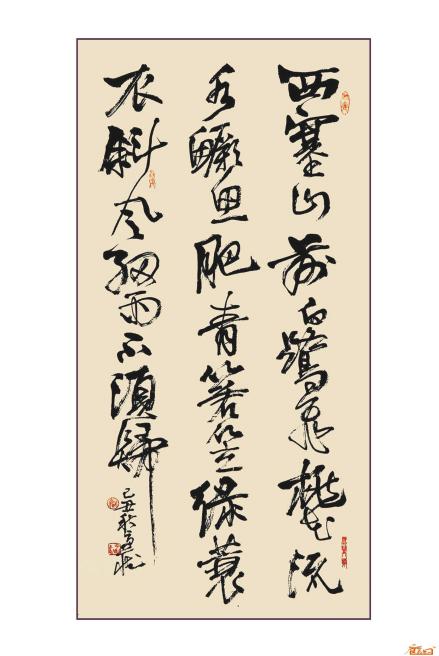 西塞山前白鹭飞桃花流
水鳜鱼肥青箬笠绿蓑
衣斜风细雨不须归
己丑秋